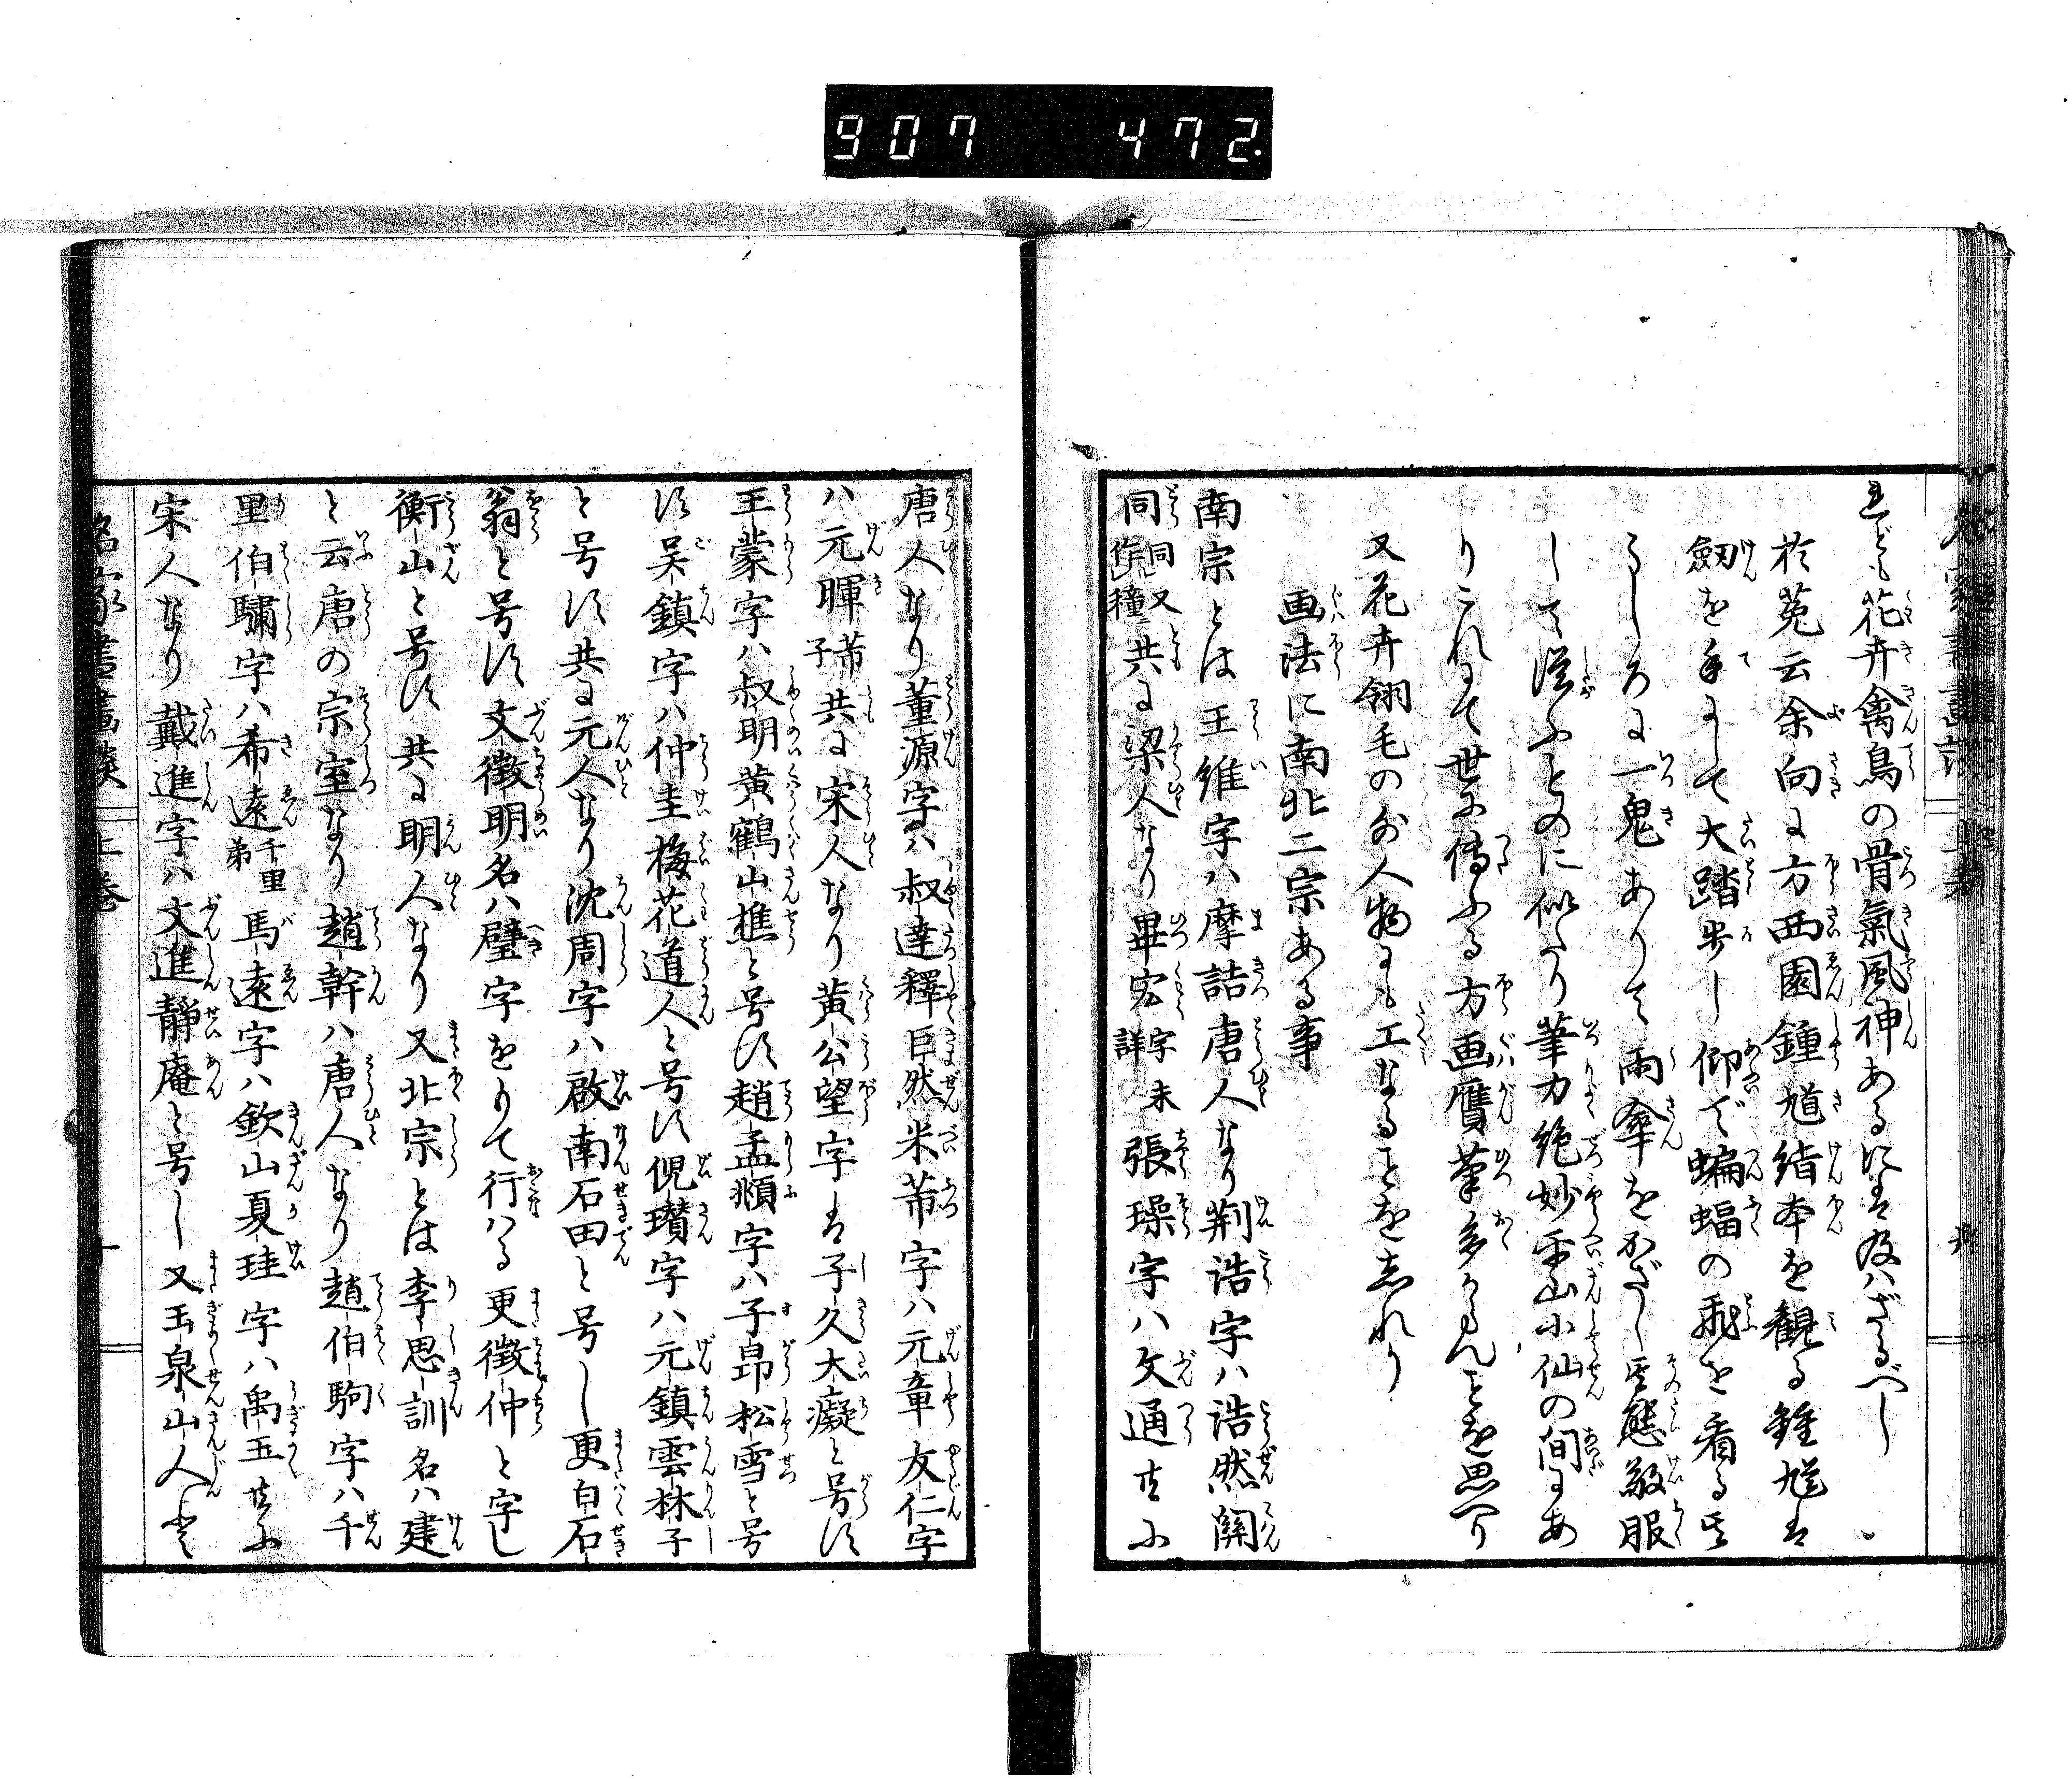 907 472
れども花卉禽鳥の骨氣風神あるにハ及ハざるべし
於菟云余向に方西園鍾馗绢本を觀る鍾馗ハ
劔を手にして大踏歩し仰で蝙蝠の飛を看る其
うしろに一鬼ありて雨傘をかざし其態敬服
して從ふものに似たり筆力絶妙雪山小仙の間にあ
りこれにて世に傳ふる方画贋筆多からんことを思へり
又花卉翎毛の外人物にも工なることを志れり
画法に南北二宗ある事
南宗とは王維字ハ摩詰唐人なり荆浩字ハ浩然關
同同又作穜共に梁人なり畢宏字未詳張璪字ハ文通共に
唐人なり董源字ハ叔達釋巨然米芾字ハ元章友仁字
ハ元暉芾子共に宋人なり黄公望字ハ子久大癡と号す
王蒙字ハ叔明黄鶴山樵と号す趙孟頫字ハ子昻松雪と号
す吴鎮字ハ仲圭梅花道人と号す倪瓚字ハ元鎮雲林子
と号す共に元人なり沈周字ハ啟南石田と号し更白石
翁と号す文徴明名ハ璧字をもて行ハる更徴仲と字し
衡山と号す共に明人なり又北宗とは李思訓名ハ建
と云唐の宗室なり趙幹ハ唐人なり趙伯駒字ハ千
里伯驌字ハ希遠千里弟馬遠字ハ欽山夏珪字ハ禹玉共に
宋人なり戴進字ハ文進靜庵と号し又玉泉山人と
名家書畫談 上巻